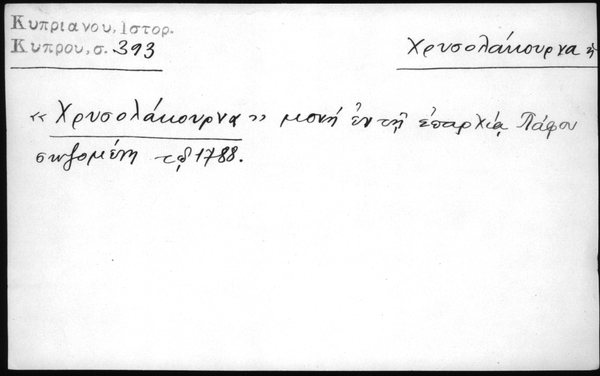 Κυπριανου, Ιστορ.
Κυπρου, σ. 393
Χρυσολάκουρνα ἡ
« Χρυσολάκουρνα » μονή ἐν τῇ ἐπαρχίᾳ Πάφου
σωζομένη τῷ 1788.